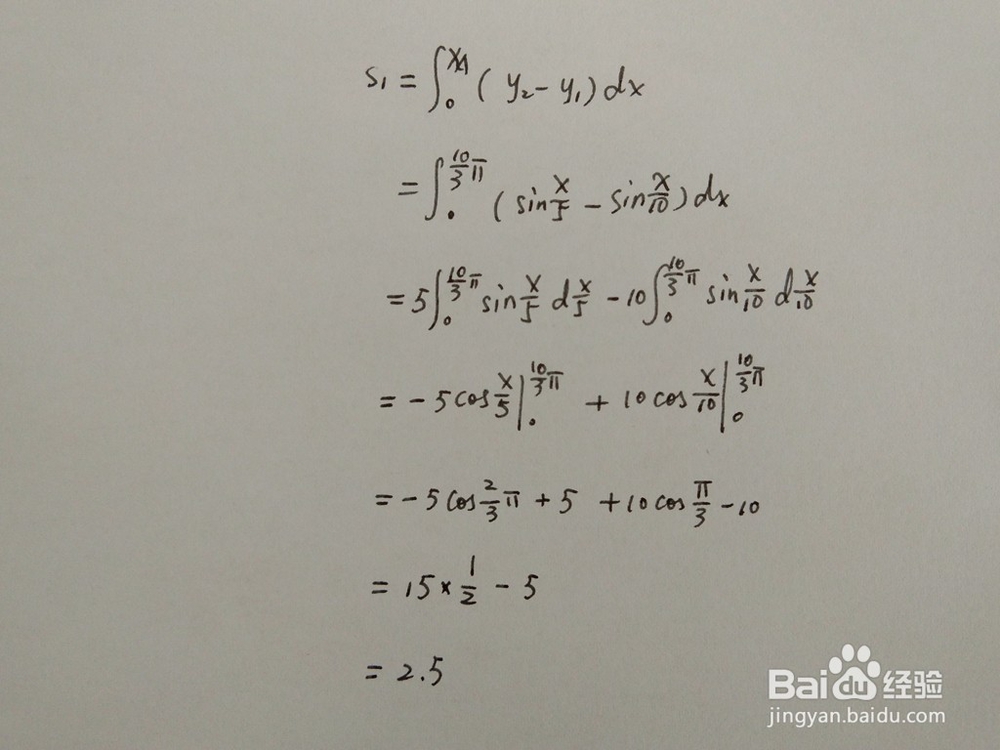 S₁ = ∫₀^{x_A} (y₂ - y₁) dx
= ∫₀^{10/3 π} (sin x/5 - sin x/10) dx
= 5 ∫₀^{10/3 π} sin x/5 d x/5 - 10 ∫₀^{10/3 π} sin x/10 d x/10
= - 5 cos x/5 |₀^{10/3 π} + 10 cos x/10 |₀^{10/3 π}
= - 5 cos 2/3 π + 5 + 10 cos π/3 - 10
= 15 × 1/2 - 5
= 2.5
Baidu 经验
jingyan.baidu.com